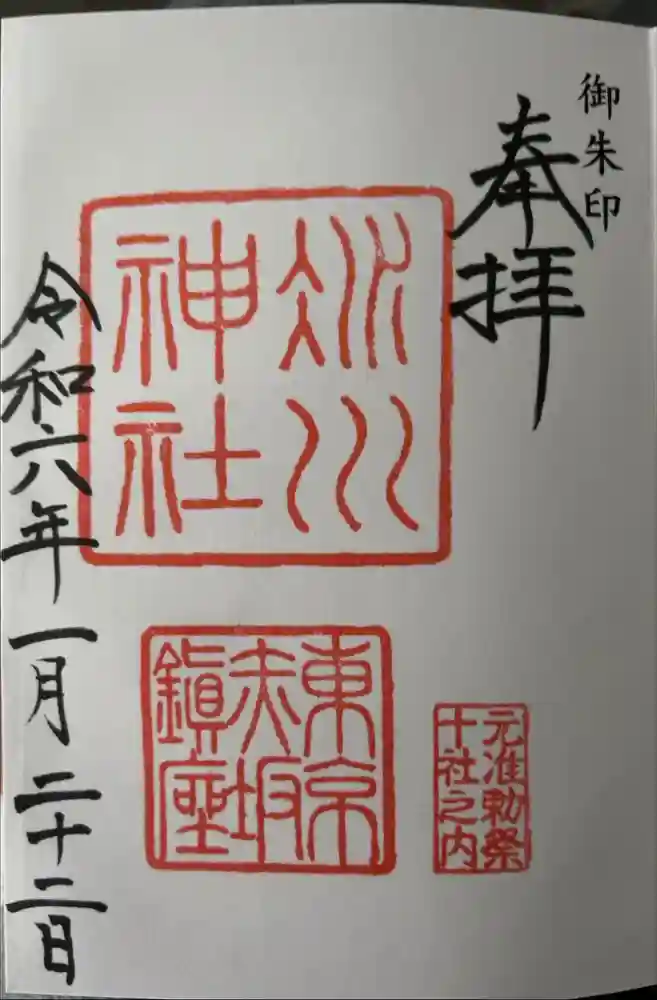 御朱印
奉拝
氷川
神社
東京
赤坂
鎮座
元准勅祭
十社之内
令和六年一月二十二日